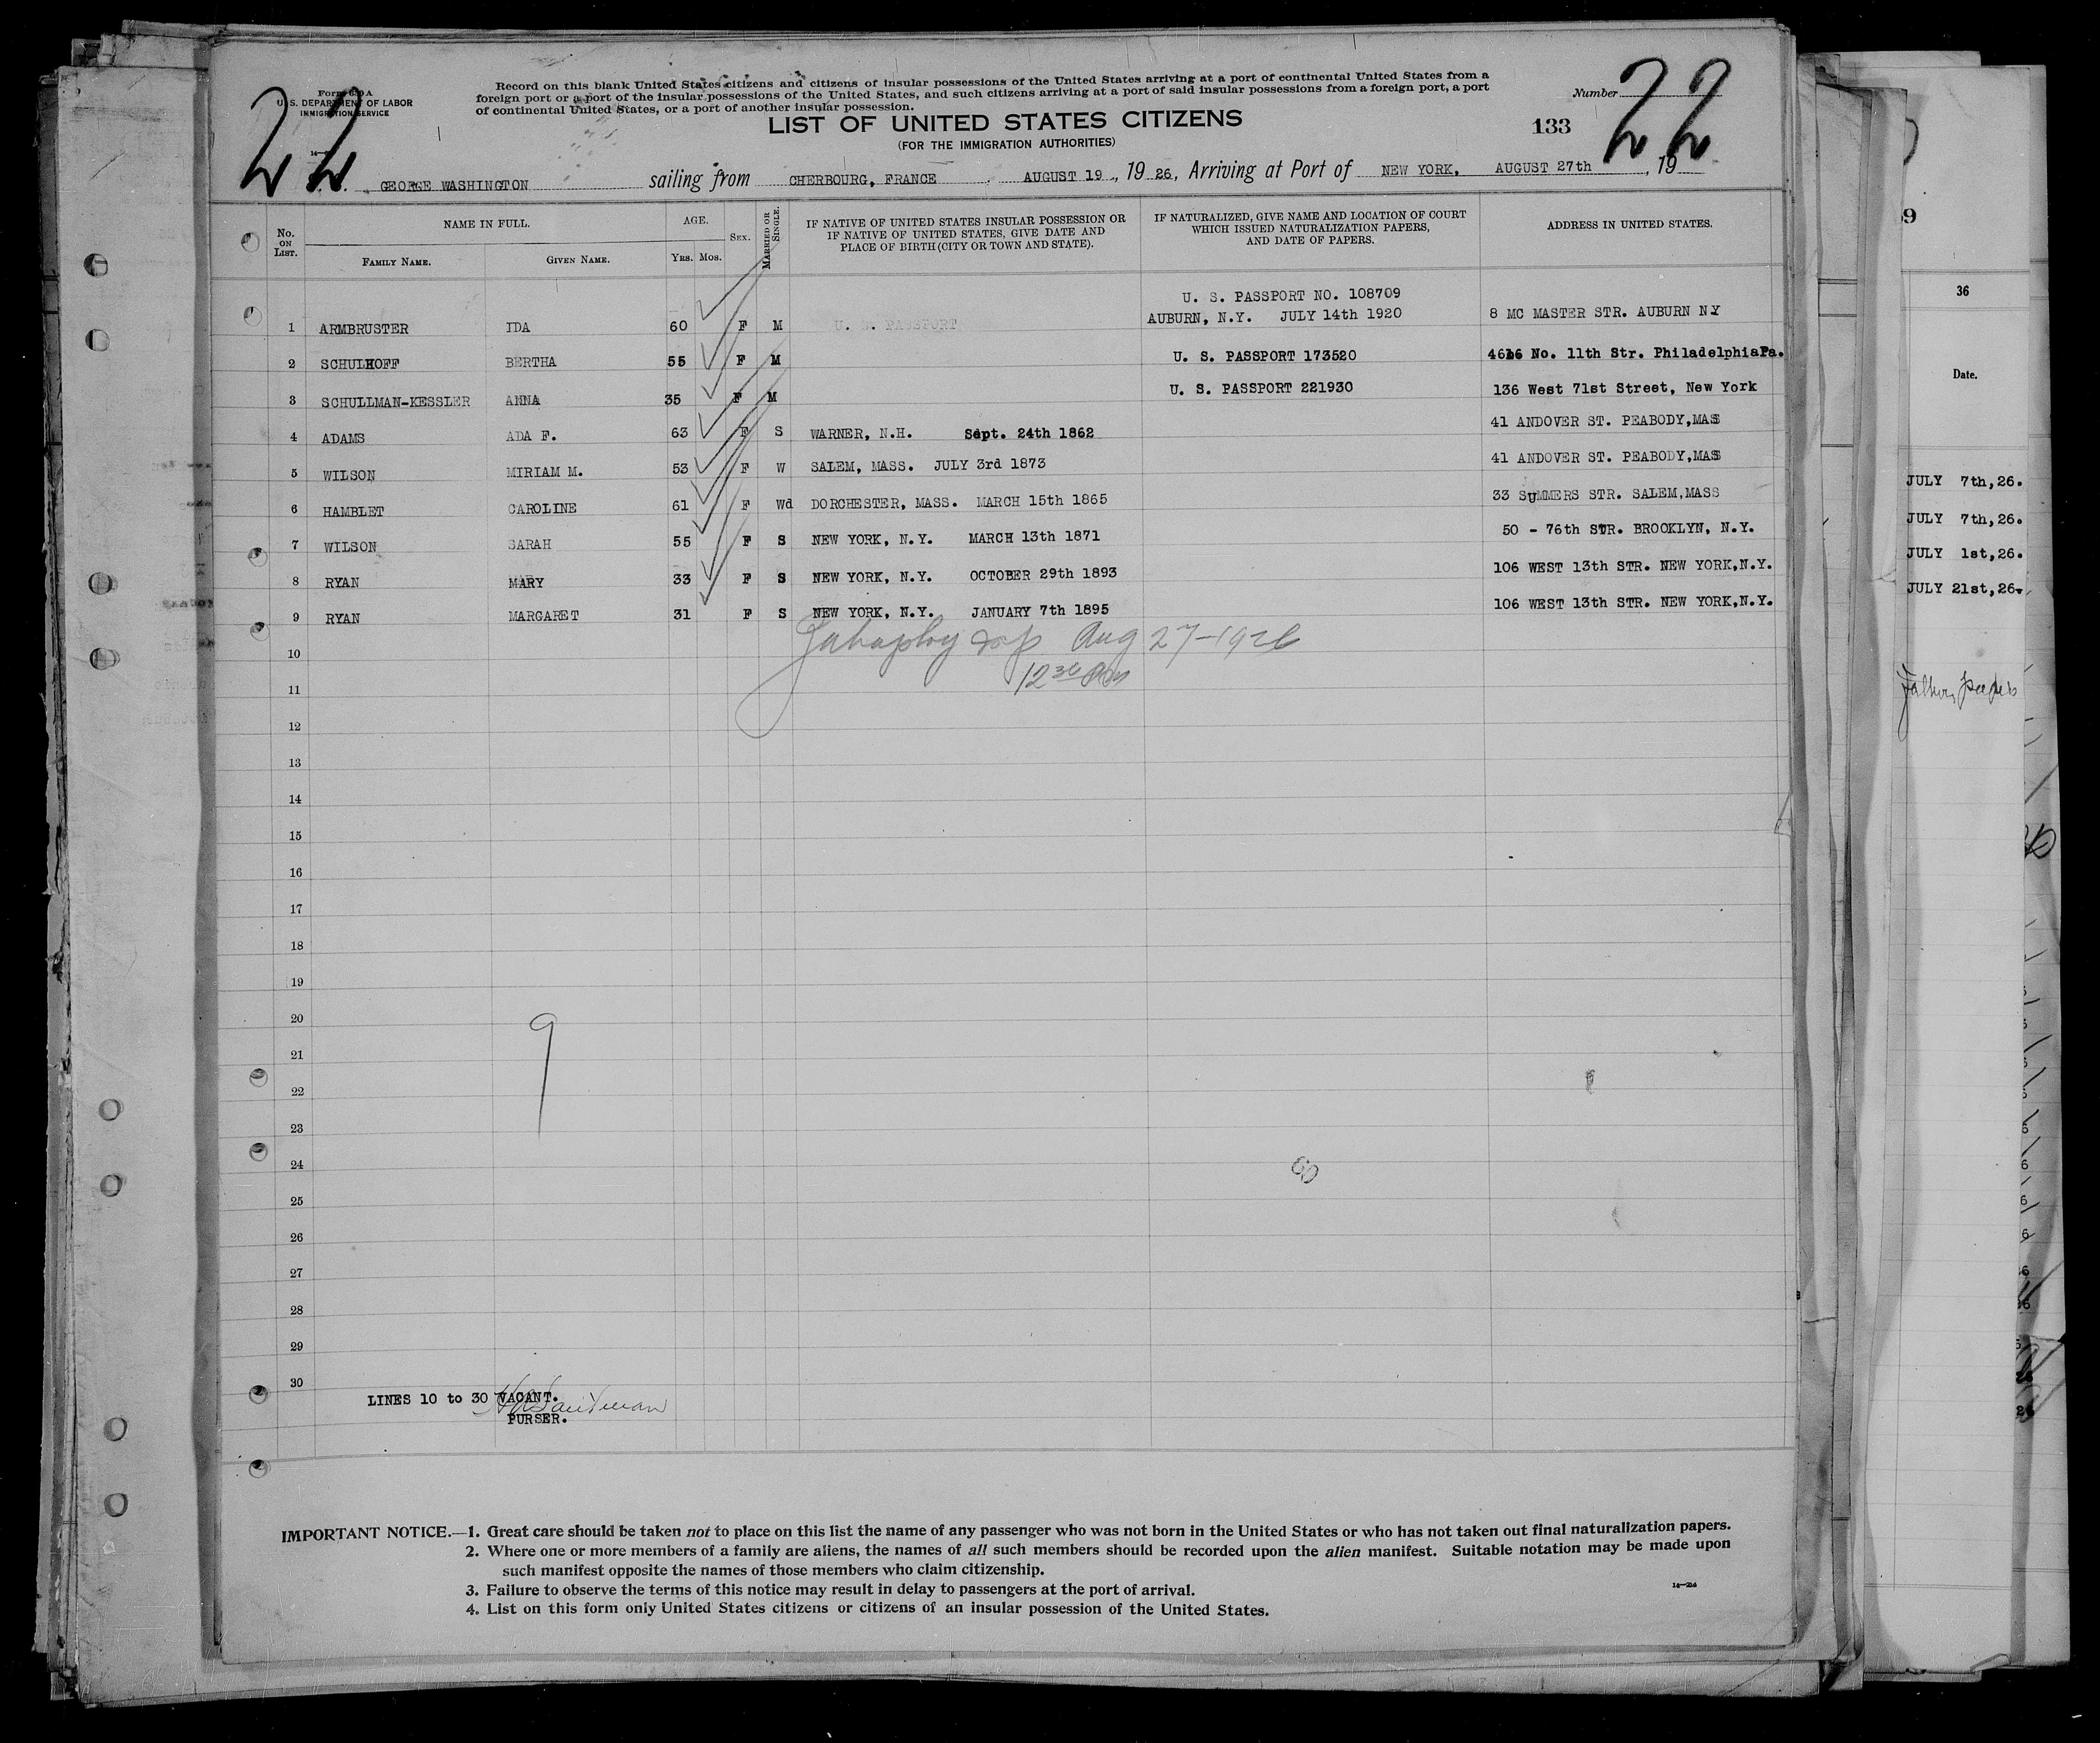 Form 630 A
U.S. DEPARTMENT OF LABOR
IMMIGRATION SERVICE
Record on this blank United States citizens and citizens of insular possessions of the United States arriving at a port of continental United States from a
foreign port or a port of the insular possessions of the United States, and such citizens arriving at a port of said insular possessions from a foreign port, a port
of continental United States, or a port of another insular possession.
LIST OF UNITED STATES CITIZENS
(FOR THE IMMIGRATION AUTHORITIES)
Number 22
133
22
GEORGE WASHINGTON sailing from CHERBOURG, FRANCE AUGUST 19, 1926, Arriving at Port of NEW YORK, AUGUST 27th, 19
No. ON LIST.
NAME IN FULL.
FAMILY NAME. GIVEN NAME.
AGE.
YRS. MOS.
SEX.
MARRIED OR SINGLE.
IF NATIVE OF UNITED STATES INSULAR POSSESSION OR
IF NATIVE OF UNITED STATES, GIVE DATE AND
PLACE OF BIRTH (CITY OR TOWN AND STATE).
IF NATURALIZED, GIVE NAME AND LOCATION OF COURT
WHICH ISSUED NATURALIZATION PAPERS,
AND DATE OF PAPERS.
ADDRESS IN UNITED STATES.
U. S. PASSPORT NO. 108709
1 ARMBRUSTER IDA 60 F M U. S. PASSPORT AUBURN, N.Y. JULY 14th 1920 8 MC MASTER STR. AUBURN NY
2 SCHULHOFF BERTHA 55 F M U. S. PASSPORT 173520 4616 No. 11th Str. PhiladelphiaPa.
3 SCHULLMAN-KESSLER ANNA 35 F M U. S. PASSPORT 221930 136 West 71st Street, New York
4 ADAMS ADA F. 63 F S WARNER, N.H. Sept. 24th 1862 41 ANDOVER ST. PEABODY,MASS
5 WILSON MIRIAM M. 53 F W SALEM, MASS. JULY 3rd 1873 41 ANDOVER ST. PEABODY,MASS
6 HAMBLET CAROLINE 61 F Wd DORCHESTER, MASS. MARCH 15th 1865 33 SUMMERS STR. SALEM,MASS
7 WILSON SARAH 55 F S NEW YORK, N.Y. MARCH 13th 1871 50 - 76th STR. BROOKLYN, N.Y.
8 RYAN MARY 33 F S NEW YORK, N.Y. OCTOBER 29th 1893 106 WEST 13th STR. NEW YORK,N.Y.
9 RYAN MARGARET 31 F S NEW YORK, N.Y. JANUARY 7th 1895 106 WEST 13th STR. NEW YORK,N.Y.
Aug 27-1926
10
12 30
11
12
13
14
15
16
17
18
19
20
9
21
22
23
24
25
26
27
28
29
30
LINES 10 to 30 VACANT.
PURSER.
IMPORTANT NOTICE.—1. Great care should be taken not to place on this list the name of any passenger who was not born in the United States or who has not taken out final naturalization papers.
2. Where one or more members of a family are aliens, the names of all such members should be recorded upon the alien manifest. Suitable notation may be made upon
such manifest opposite the names of those members who claim citizenship.
3. Failure to observe the terms of this notice may result in delay to passengers at the port of arrival.
4. List on this form only United States citizens or citizens of an insular possession of the United States.
9
36
Date.
JULY 7th,26.
JULY 7th,26.
JULY 1st,26.
JULY 21st,26.